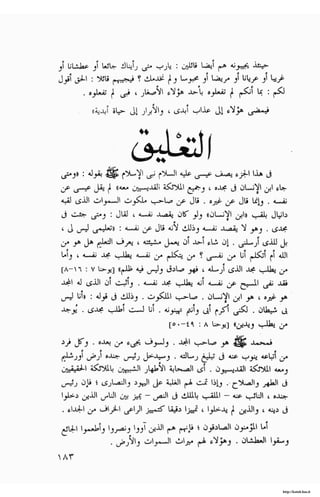 حينئذ يجيبونه هم أيضا قائلين : يارب متى رأيناك جائعا أو عطشانا أو
غريبا أو عريانا أو مريضا أو محبوسا ولم نخدمك ؟ فيجيبهم قائلا : الحق أقول
لكم : بما أنكم لم تفعلوه بأحد هؤلاء الأصاغر ، فبى لم تفعلوه .
فيمضى هؤلاء إلى عذاب أبدى ، والأبرار إلى حياة أبدية»
التعليق
فى هذا الجزء يصف عيسى عليه السلام نبى الإسلام ﷺ بقوله : «ومتى
جاء ابن الإنسان فى مجده ، وجميع الملائكة القديسين معه» لم يقل عيسى عن
نفسه . وإنما قال عن غيره . قال عن صاحب ملكوت السموات الذى لقبه
دانيال بلقب «ابن الإنسان» ولو كان يقصد نفسه ، لقال : ومتى جئت فى
مجدى . وهو لا يقصد نفسه وذلك لأنه قال عن نفسه : «تعليمى ليس لى ،
بل للذى أرسلنى . إن شاء أحد أن يعمل مشيئته ، يعرف التعليم هل هو من
الله أم أتكلم أنا من نفسى ؟ من يتكلم من نفسه يطلب مجد نفسه ، وأما
من يطلب مجد الذى أرسله ، فهو صادق وليس فيه ظلم» [يوحنا ٧ : ١٦-١٨]
فقد نفى المسيح عن نفسه أنه يطلب مجد نفسه . وأثبت أن الذى له المجد
هو غيره ، هو ابن الإنسان . صاحب الملكوت . وذلك فى قوله : «أنا ليس
بى شيطان . لكنى أكرم أبى وأنتم تهينوننى . أنا لست أطلب مجدى . يوجد
من يطلب ويدين» [يوحنا ٨ : ٤٩-٥٠]
فمحمد ﷺ هو صاحب المجد . ولسوف يجىء من بعده . وكل فرد
من أتباعه ينوب عنه فى تبليغ رسالته . وسيدخل رئيس جنده أرض أورشليم
ومعه الملائكة القديسيون . أى الصحابة الأطهار الشبيهين بالملائكة الحقيقيين
فى الطهر والصلاح . وإذا تمت لهم الغلبة على اليهود والنصارى ؛ فإن رئيس
جنده ، النائب عنه – الملقب بالملك فى النص – يميز بين الناس الذين دخلوا
فى دينه ، والذين لم يدخلوا ، تمييزا دقيقا كتمييز الراعى الخراف من الجداء .
أما المؤمنون الصادقون ؛ فإنهم هم الذين آووا ونصروا وأطعموا الجائع
وسقوا العطشان . وهؤلاء لهم ميراث السموات والأرض .
١٨٣